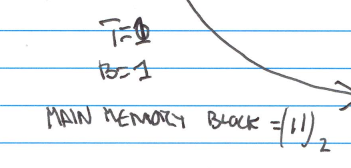 B=1
MAIN MEMORY BLOCK =(11)₂